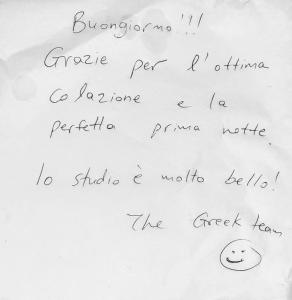 Buongiorno!!!
Grazie per l'ottima
colazione e la
perfetta prima notte.
lo studio è molto bello!
The Greek team